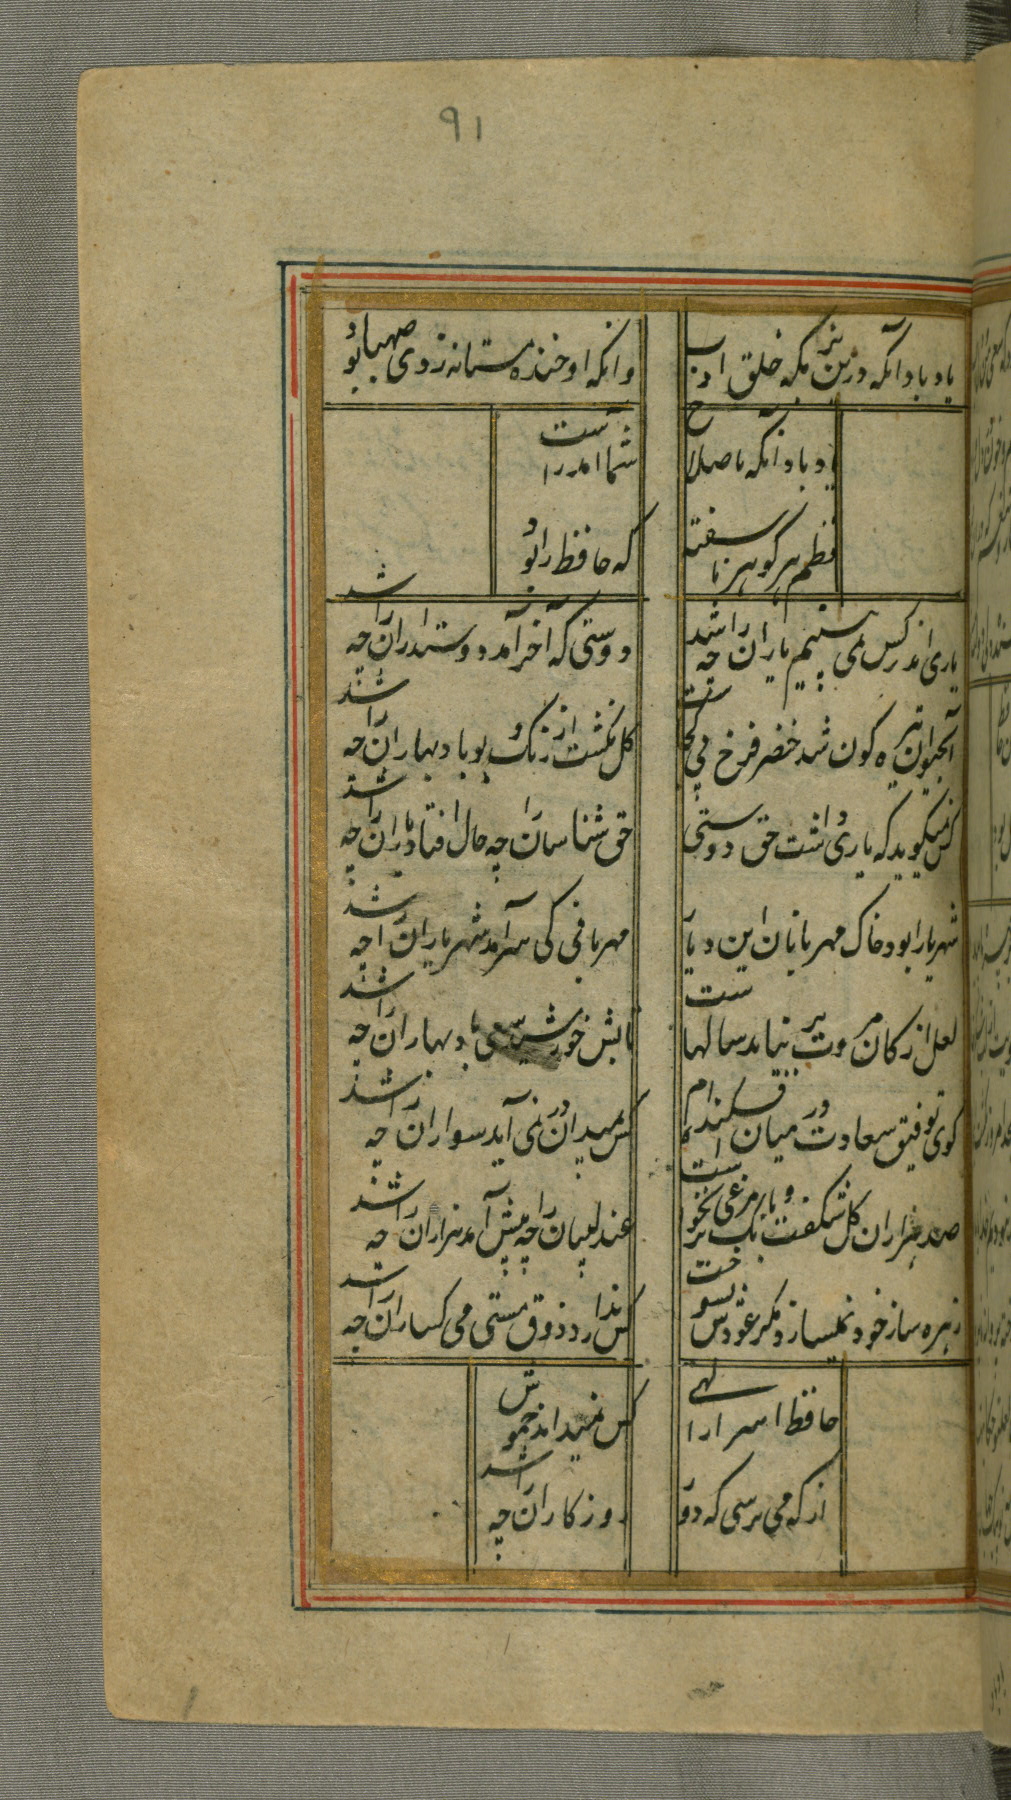 ۹۱
یاد باد آنکه درین بزمگه خلق ادب
وانکه او خنده مستانه زدی صهبا بود
یاد باد آنکه باصلاح
شما امد راست
نظم هر گوهر ناسفته
که حافظ را بود
یاری اندر کس نمی بینیم یاران را چه شد
دوستی کی آخر آمد دوستداران را چه شد
آب حیوان تیره گون شد خضر فرخ پی کجاست
گل بگشت از رنگ و بو باد بهاران را چه شد
کس نمیگوید که یاری داشت حق دوستی
حق شناسان را چه حال افتاد یاران را چه شد
شهریارا بود خاک مهربانان این دیار
مهربانی کی سرآمد شهریاران را چه شد
لعل از کان مروت بر نیامد سالهاست
تابش خورشید سعی باد بهاران را چه شد
گوی توفیق سعادت در میان افکنده‌ام
کس بمیدان در نمی آید سواران را چه شد
صد هزاران گل شکفت و بانگ مرغی بر نخواست
عندلیبان را چه پیش آمد هزاران را چه شد
زهره ساز خود نمیسازد مگر عودش بسوخت
کس ندارد ذوق مستی می کساران را چه شد
حافظ اسرار الهی
کس نمیداند خموش
از که می پرسی که دور
روزکاران را چه شد